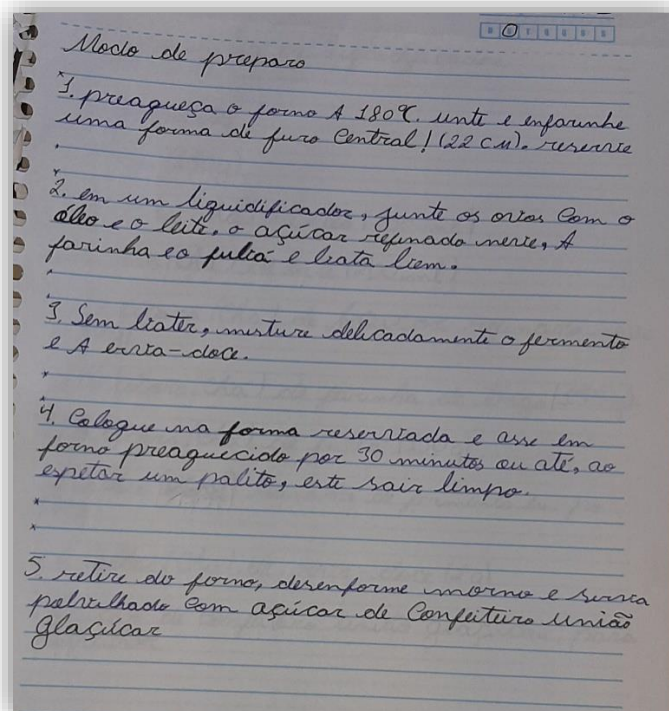 Modo de preparo
1. preaqueça o forno A 180°C. unte e enfarinhe
uma forma de furo Central! (22 cm). reserve
2. em um liquidificador, junte os ovos com o
óleo e o leite. o açúcar refinado neve, A
farinha e o fubá e bata bem.
3. Sem bater, misture delicadamente o fermento
e A erva-doce.
4. Coloque na forma reservada e asse em
forno preaquecido por 30 minutos ou até, ao
espetar um palito, este sair limpo.
5. retire do forno, desenforme morno e sirva
polvilhado com açúcar de Confeiteiro União
Glaçúcar